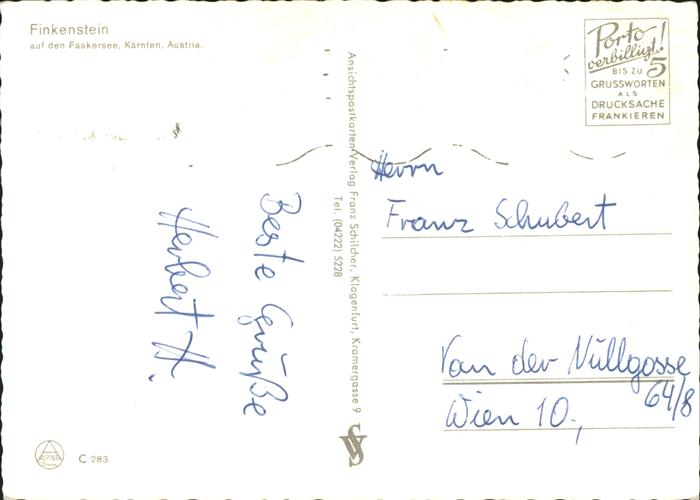 Finkenstein
auf den Faakersee, Kärnten, Austria.
Porto
verbilligt!
BIS ZU 5
GRUSSWORTEN
ALS
DRUCKSACHE
FRANKIEREN
Beste Grüße
Herbert H.
Ansichtspostkarten-Verlag Franz Schilcher, Klagenfurt, Kramergasse 9
Tel. (04222) 5228
Herrn
Franz Schubert
Van der Nüllgasse
64/8
Wien 10.,
C 283